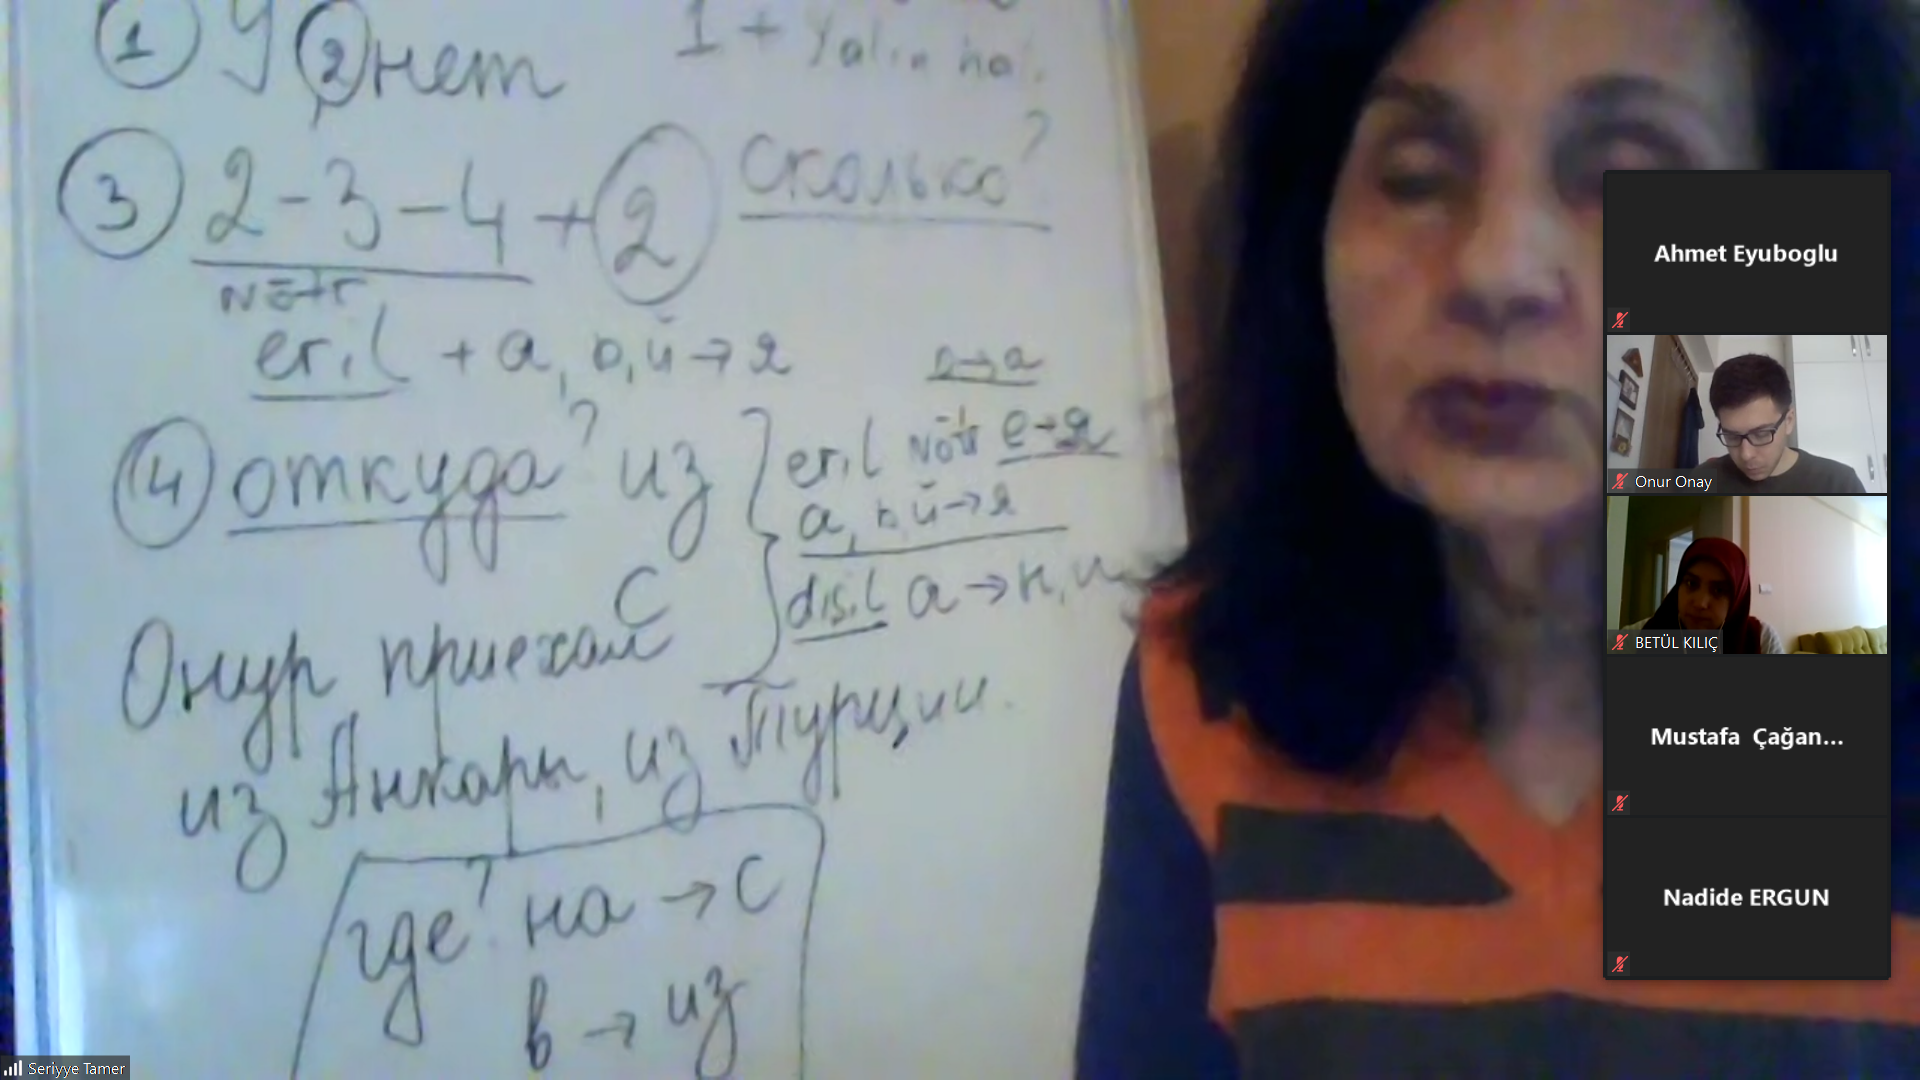 ① У ② нет
1 + Yalın hal.
③ 2-3-4 + ② сколько?
Nötr
eril + а, ь, й → я
о → а
④ откуда? из
с
eril Nötr е → я
а, ь, й → я
dişil а → ы, и
Онур приехал
из Анкары, из Турции.
где? на → с
в → из
Ahmet Eyuboglu
Onur Onay
BETÜL KILIÇ
Mustafa Çağan...
Nadide ERGUN
Seriyye Tamer